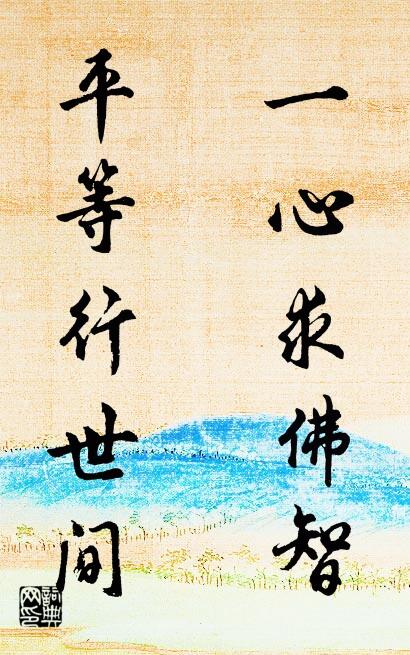 一心求佛智
平等行世间